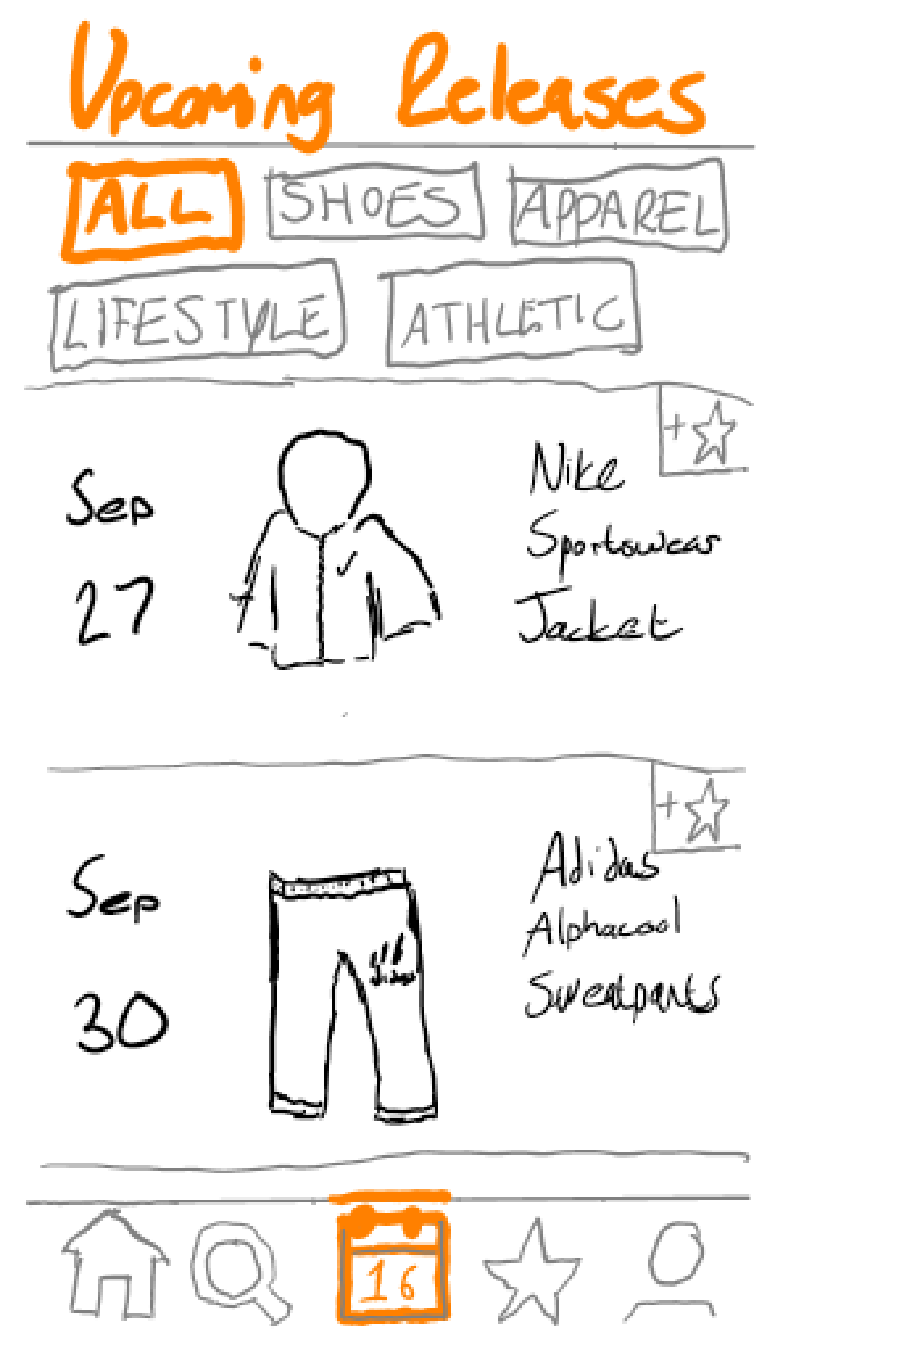 Upcoming Releases
ALL SHOES APPAREL
LIFESTYLE ATHLETIC
+
Sep
27
Nike
Sportswear
Jacket
+
Sep
30
Adidas
Alphacool
Sweatpants
16